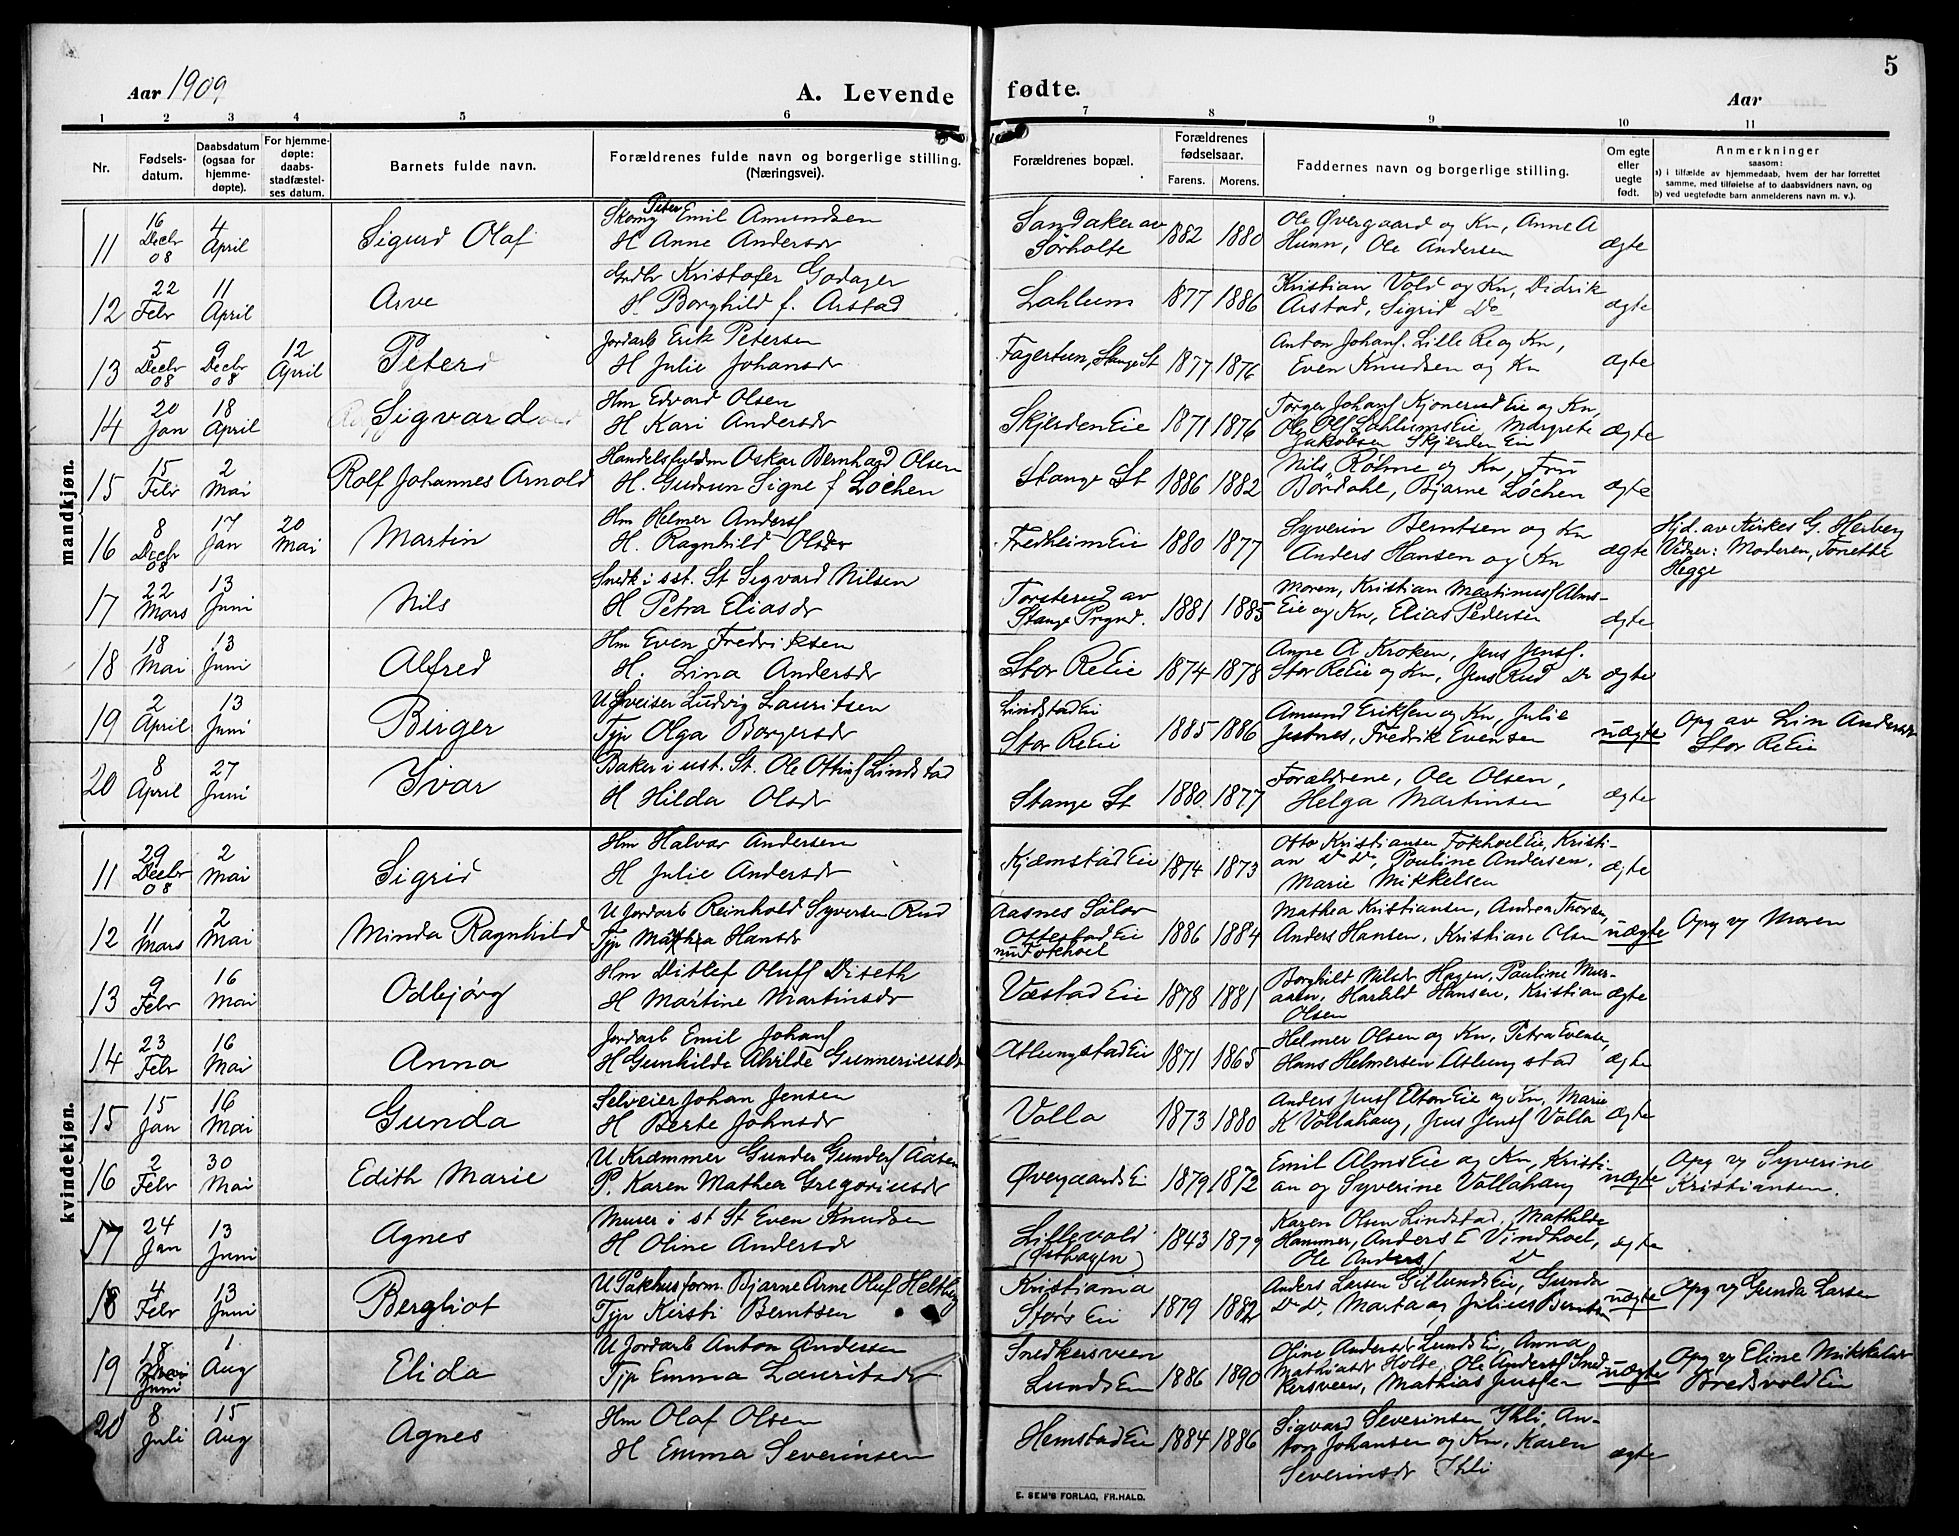 5
Aar 1909
A. Levende fødte.
Aar
1 2 3 4 5 6 7 8 9 10 11
Nr.
Fødsels-
datum.
Daabsdatum
(ogsaa for
hjemme-
døpte).
For hjemme-
døpte:
daabs-
stadfæstel-
ses datum.
Barnets fulde navn.
Forældrenes fulde navn og borgerlige stilling.
(Næringsvei).
Forældrenes bopæl.
Forældrenes
fødselsaar.
Farens. Morens.
Faddernes navn og borgerlige stilling.
Om egte
eller
uegte
født.
Anmerkninger
saasom:
a) i tilfælde av hjemmedaab, hvem der har forrettet
samme, med tilføielse af to daabsvidners navn, og
b) ved uegtefødte barn anmelderens navn m. v.).
mandkjøn.
11
16
Decbr
08
4
April
Sigurd Olaf
Skomg Peter Emil Amundsen
H Anne Andersdr
Sandaker av
Sørholte
1882 1880
Ole Øvergaard og Kn, Anne A
Hunn, Ole Andersen
ægte
12
22
Febr
11
April
Arve
Grdbr Kristofer Godager
H. Borghild f. Arstad
Lahlum
1877 1886
Kristian Vold og Kn, Didrik
Arstad, Sigrid Do
ægte
13
5
Decbr
08
9
Decbr
08
12
April
Peter
Jordarb Erik Petersen
H Julie Johansdr
Fagertun, Stange St
1877 1876
Anton Johans. Lille Re og Kn,
Even Knudsen og Kn
ægte
14
20
Jan
18
April
Sigvard
Hm Edvard Olsen
H Kari Andersdr
Skjerden Eie
1871 1876
Torger Johans Kjonerud Eie og Kn,
Ole Ols Lahlums Eie, Margrete
Jakobsen Skjerden Eie
ægte
15
15
Febr
2
Mai
Rolf Johannes Arnold
Handelsfuldm Oskar Bernhard Olsen
H. Gudrun Signe f Løchen
Stange St
1886 1882
Nils Røhne og Kn, Fru
Børdahl, Bjarne Løchen
ægte
16
8
Decbr
08
17
Jan
20
Mai
Martin
Hm Helmer Anders
H. Ragnhild Olsdr
Fredheim Eie
1880 1877
Syverin Berntsen og Kn
Anders Hansen og Kn
ægte
Hjd. av Kirkes G. Herberg
Vidner: Moderen, Tonette
Hegge
17
22
Mars
13
Juni
Nils
Snedk i sst. St Sigvard Nilsen
H Petra Eliasdr
Torsterud av
Stange Prgnd.
1881 1885
Moren, Kristian Martinus Alms-
Eie og Kn, Elias Pedersen
ægte
18
18
Mai
13
Juni
Alfred
Hm Even Fredriksen
H. Lina Andersdr
Stor Re Eie
1874 1878
Anne A Kroken, Jens Jens.
Stor Re Eie og Kn, Jens Rud Do
ægte
19
2
April
13
Juni
Birger
U Sveiser Ludvig Lauritsen
Typ Olga Borgersdr
Lindstad Ei
Stor Re Eie
1885 1886
Amund Eriksen og Kn, Julie
Jestnes, Fredrik Evensen
uægte
Opg av Lin Andersdr
Stor Re Eie
20
8
April
27
Juni
Ivar
Baker i ust. St. Ole Ottin Lindstad
H Hilda Olsdr
Stange St
1880 1877
Forældrene, Ole Olsen,
Helga Martinsen
ægte
kvindekjøn.
11
29
Decbr
08
2
Mai
Sigrid
Hm Halvar Andersen
H Julie Andersdr
Kjemstad Eie
1874 1873
Otto Kristiansen Fokhol Eie, Kristi-
an Do Do, Pauline Andersen,
Marie Mikkelsen
ægte
12
11
Mars
2
Mai
Minda Ragnhild
U Jordarb Reinhold Syversen Rud
Typ Mathea Hansdr
Aasnes Solør
Ottestad Eie
nu Fokhol
1886 1884
Mathea Kristiansen, Andrea Thorsen,
Anders Hansen, Kristiane Olsen
uægte
Opg v Moren
13
9
Febr
16
Mai
Odbjørg
Hm Ditlef Olufs Diseth
H Martine Martinsdr
Væstad Eie
1878 1881
Borghild Nilsdr Hagen, Pauline Mur-
aaen, Harald Hansen, Kristian
Olsen
ægte
14
23
Febr
16
Mai
Anna
Jordarb Emil Johans
H Gunhilde Alvilde Gunneriusdr
Atlungstad Eie
1871 1865
Helmer Olsen og Kn, Petra Evensen,
Hans Helmersen Atlungstad
ægte
15
15
Jan
16
Mai
Gunda
Selveier Johan Jensen
H Berte Johnsdr
Volla
1873 1880
Anders Jens Elton Eie og Kn, Marie
K Vollahaug, Jens Jens Volla
ægte
16
2
Febr
30
Mai
Edith Marie
U Kræmmer Gunder Gunders Aasen
P. Karen Mathea Gregoriusdr
Øvergaards Ei
1879 1872
Emil Alms Eie og Kn, Kristi-
an og Syverine Vollahaug
uægte
Opg v Syverine
Kristiansen.
17
24
Jan
13
Juni
Agnes
Murer i st St Even Knudsen
H Oline Andersdr
Lillevold
(Østhagen)
1843 1879
Karen Olsen Lindstad, Mathilde
Hammer, Anders E Vindhol,
Ole Anders Do
ægte
18
4
Febr
13
Juni
Bergliot
U Pakhusform. Bjarne Arne Oluf Heltberg
Typ Kirsti Berntsen
Kristiania
Støvs Ei
1879 1882
Anders Larsen Gillunds Eie, Gunda
Do Do, Marta og Julius Berntsen
uægte
Opg v Gunda Larsen
19
18
Juni
1
Aug
Elida
U Jordarb Anton Andersen
Typ Emma Lauritsdr
Snedkersveen
Lunds Ei
1886 1890
Oline Andersdr Lunds Ei, Anna
Mathiasdr Holte, Ole Anders Sned-
kersveen, Mathias Jenssen
uægte
Opg v Eline Mikkelsdr
Bredsvold Ei
20
8
Juli
15
Aug
Agnes
Hm Olaf Olsen
H Emma Severinsen
Hemstad Eie
1884 1886
Sigvard Severinsen Ihli, An-
ton Johansen og Kn, Karen
Severinsdr Ihli
ægte
E. SEM'S FORLAG, FR.HALD.